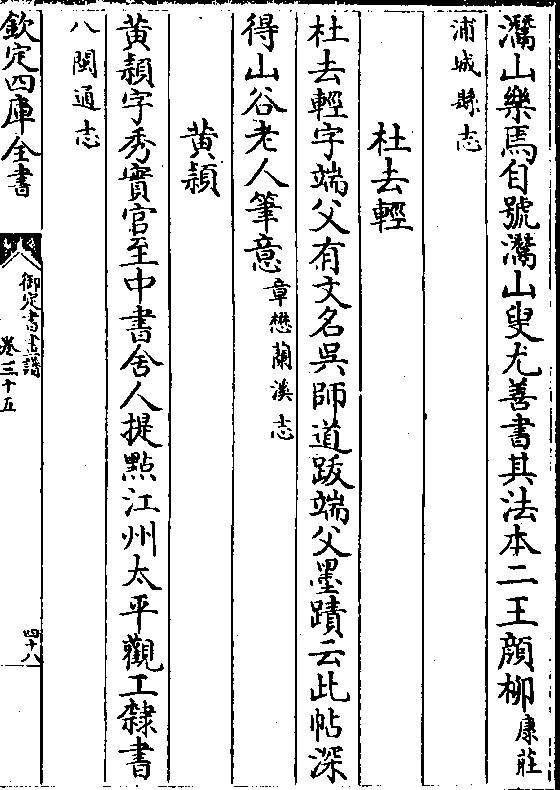 灊山樂焉自號灊山叟尤善書其法本二王顔柳康莊
浦城縣志
杜去輕
杜去輕字端父有文名吳師道跋端父墨蹟云此帖深
得山谷老人筆意章懋蘭溪志
黄頴
黄頴字秀實官至中書舍人提㸃江州太平觀工隸書
八閩通志
欽定四庫全書
御定書畫譜
卷三十五
四十八